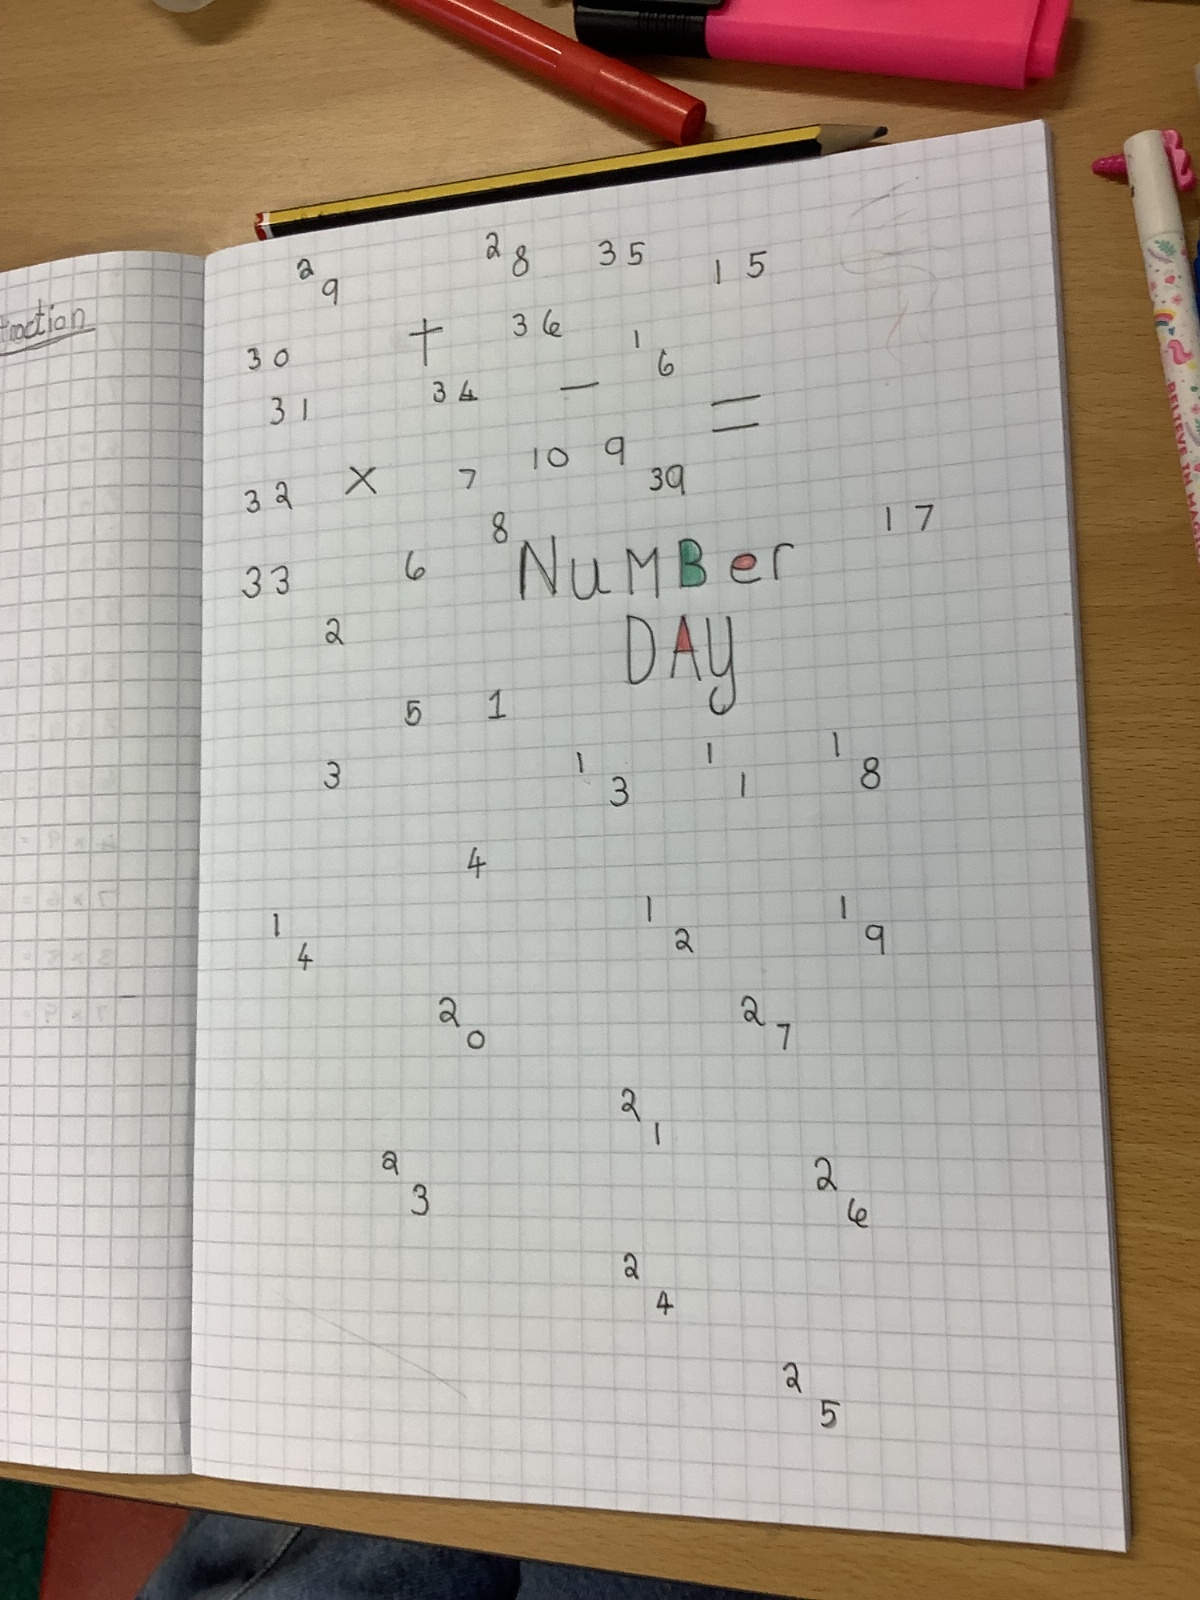 traction
29 28 35 15
30 + 36 16
31 34 − =
32 × 7 10 9 39
8 17
33 6 NuMBer
2 DAy
5 1
3 13 11 18
4
14 12 19
20 27
21
23 26
24
25
7 × 6 =
BELIEVE IN